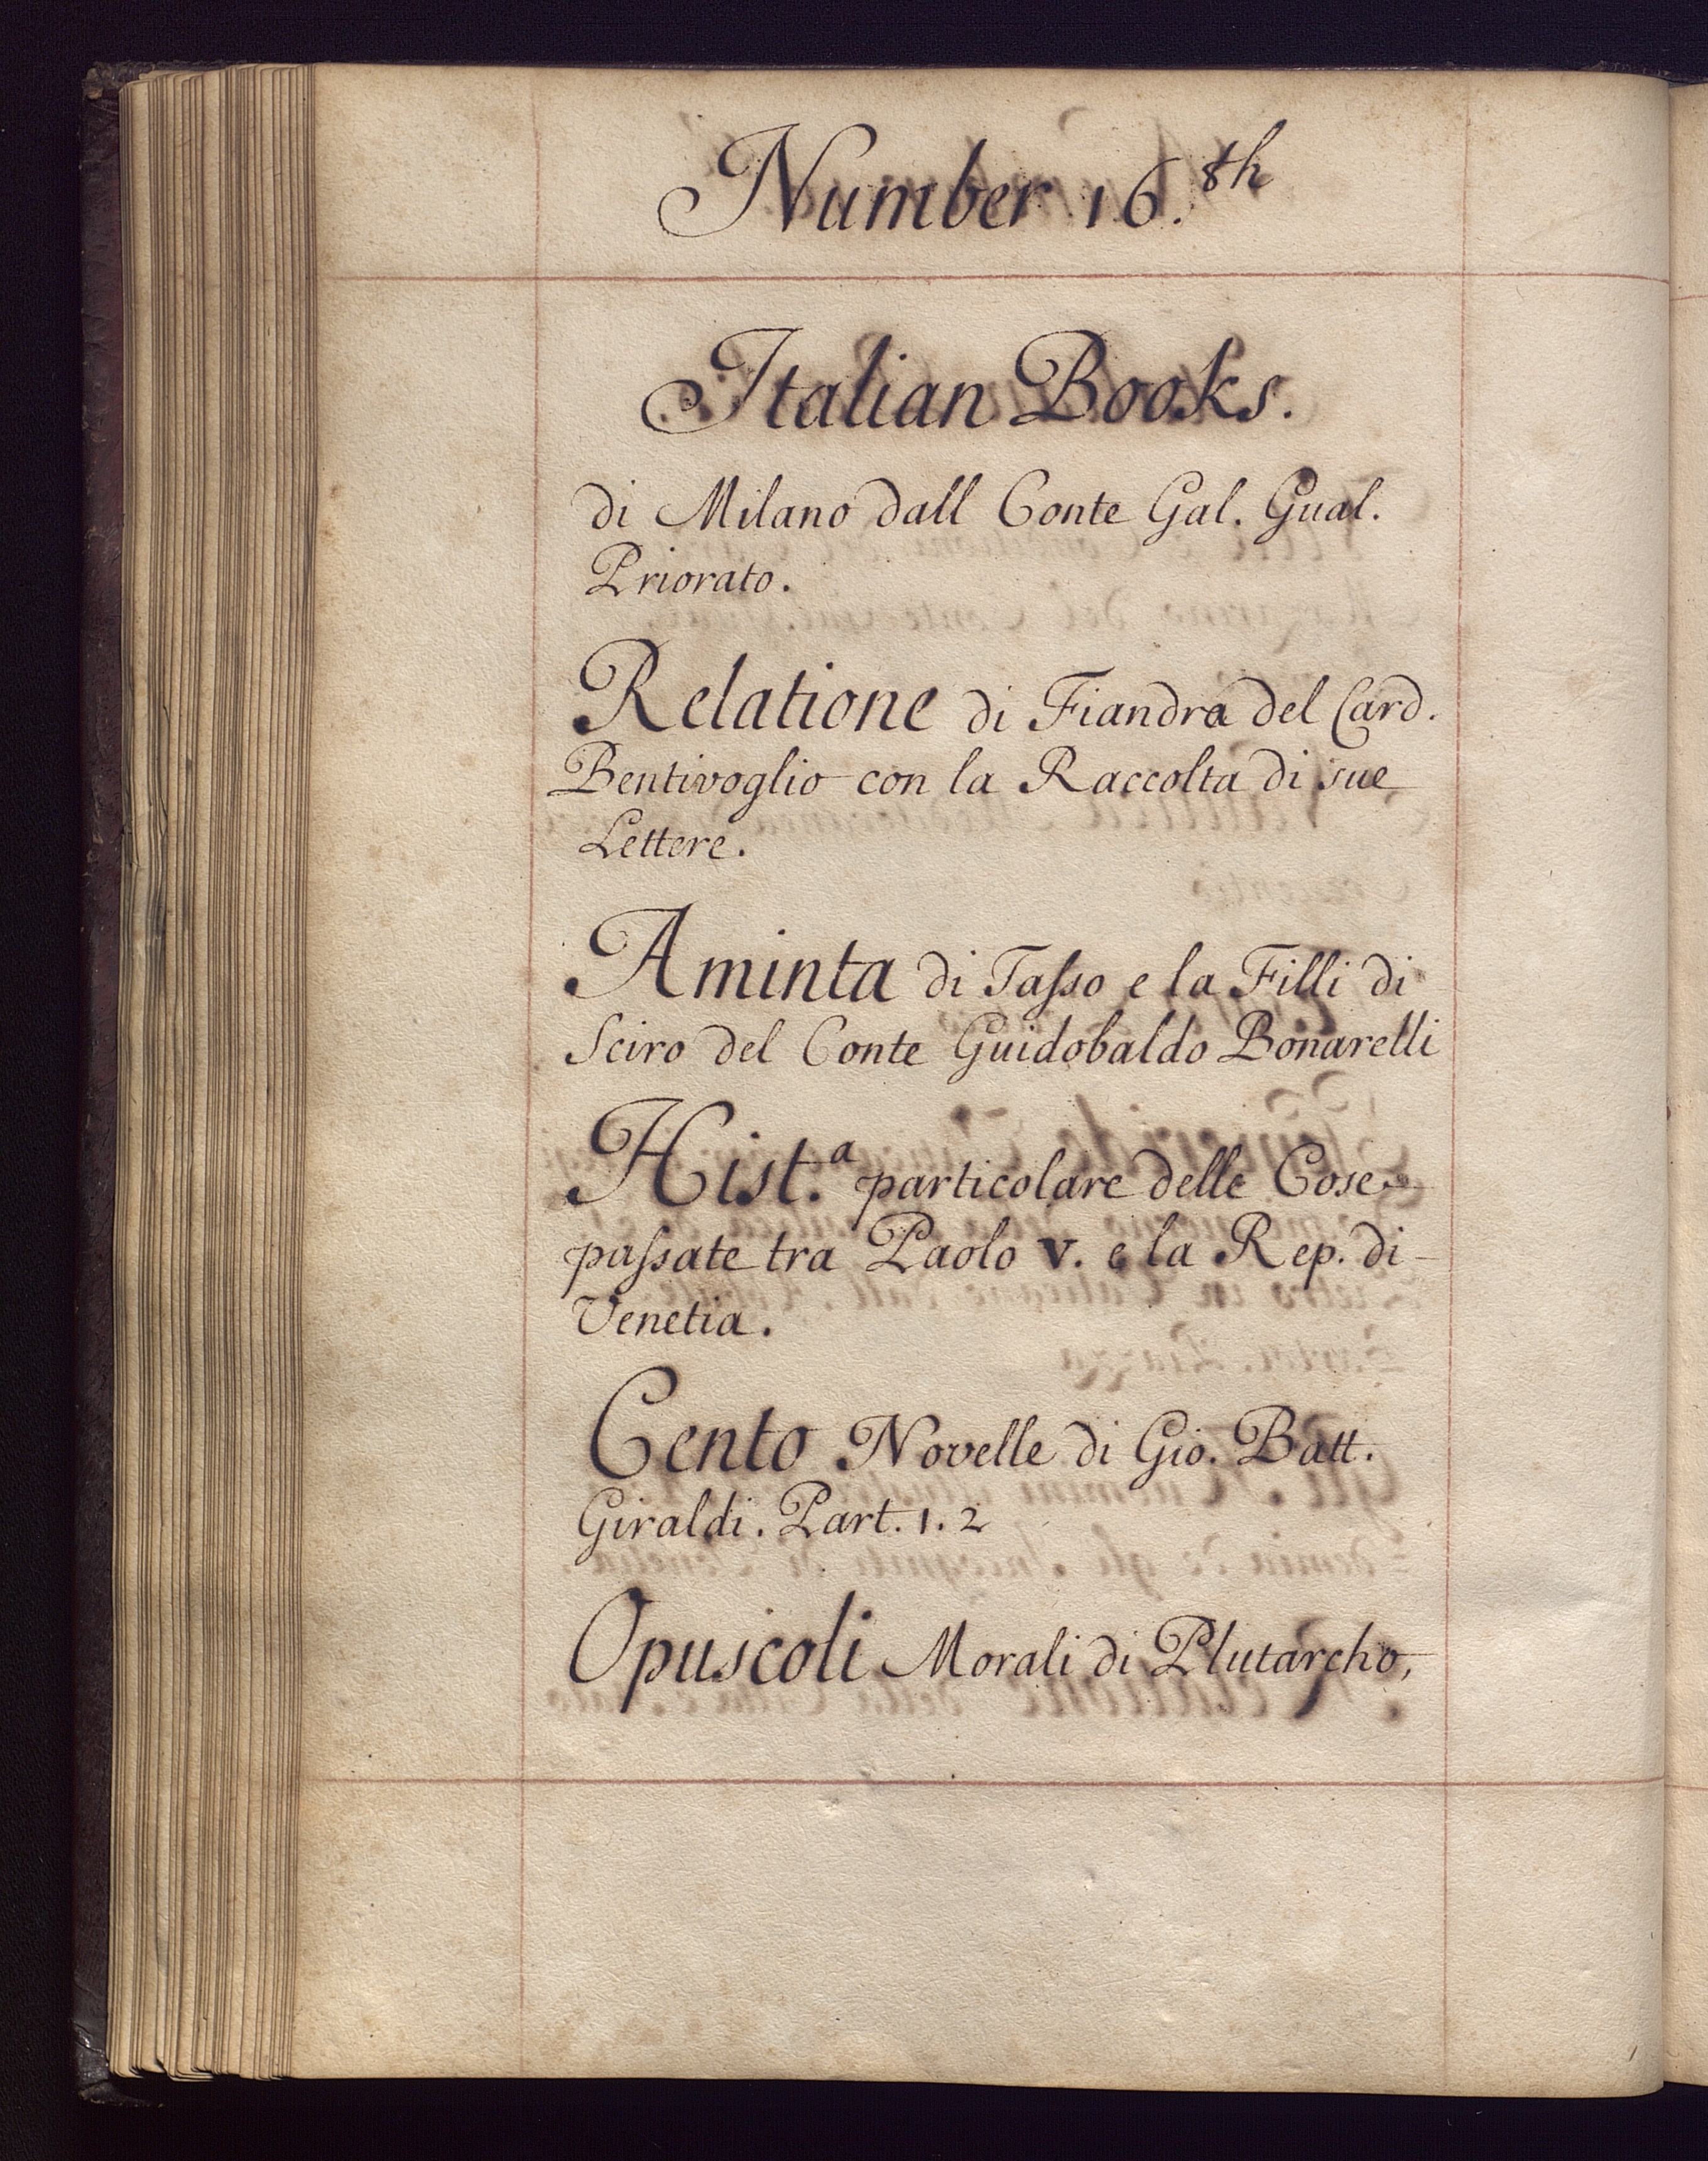 Number 16.th
Italian Books.
di Milano dall Conte Gal. Gual.
Priorato.
Relatione di Fiandra del Card.
Bentivoglio con la Raccolta di sue
Lettere.
Aminta di Taſso e la Filli di
Sciro del Conte Guidobaldo Bonarelli
Hist.a particolare delle Cose
paſsate tra Paolo V. e la Rep. di
Venetia.
Cento Novelle di Gio. Batt.
Giraldi. Part. 1. 2
Opuscoli Morali di Plutarcho,